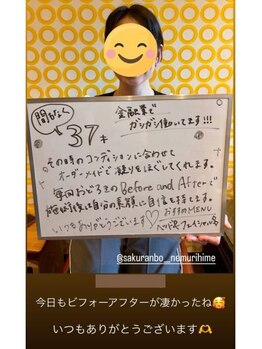 間もなく
37才
金融業で
ガシガシ働いてます!!!
その時のコンディションに合わせて
オーダーメイドで凝りをほぐしてくれます。
毎回おどろきのBefore and Afterで
施術後は自分の素顔に自信を持てます。
いつもありがとうございます♡
おすすめMENU
ヘッド&フェイシャル
@sakuranbo_nemurihime
今日もビフォーアフターが凄かったね🥰
いつもありがとうございます🫶